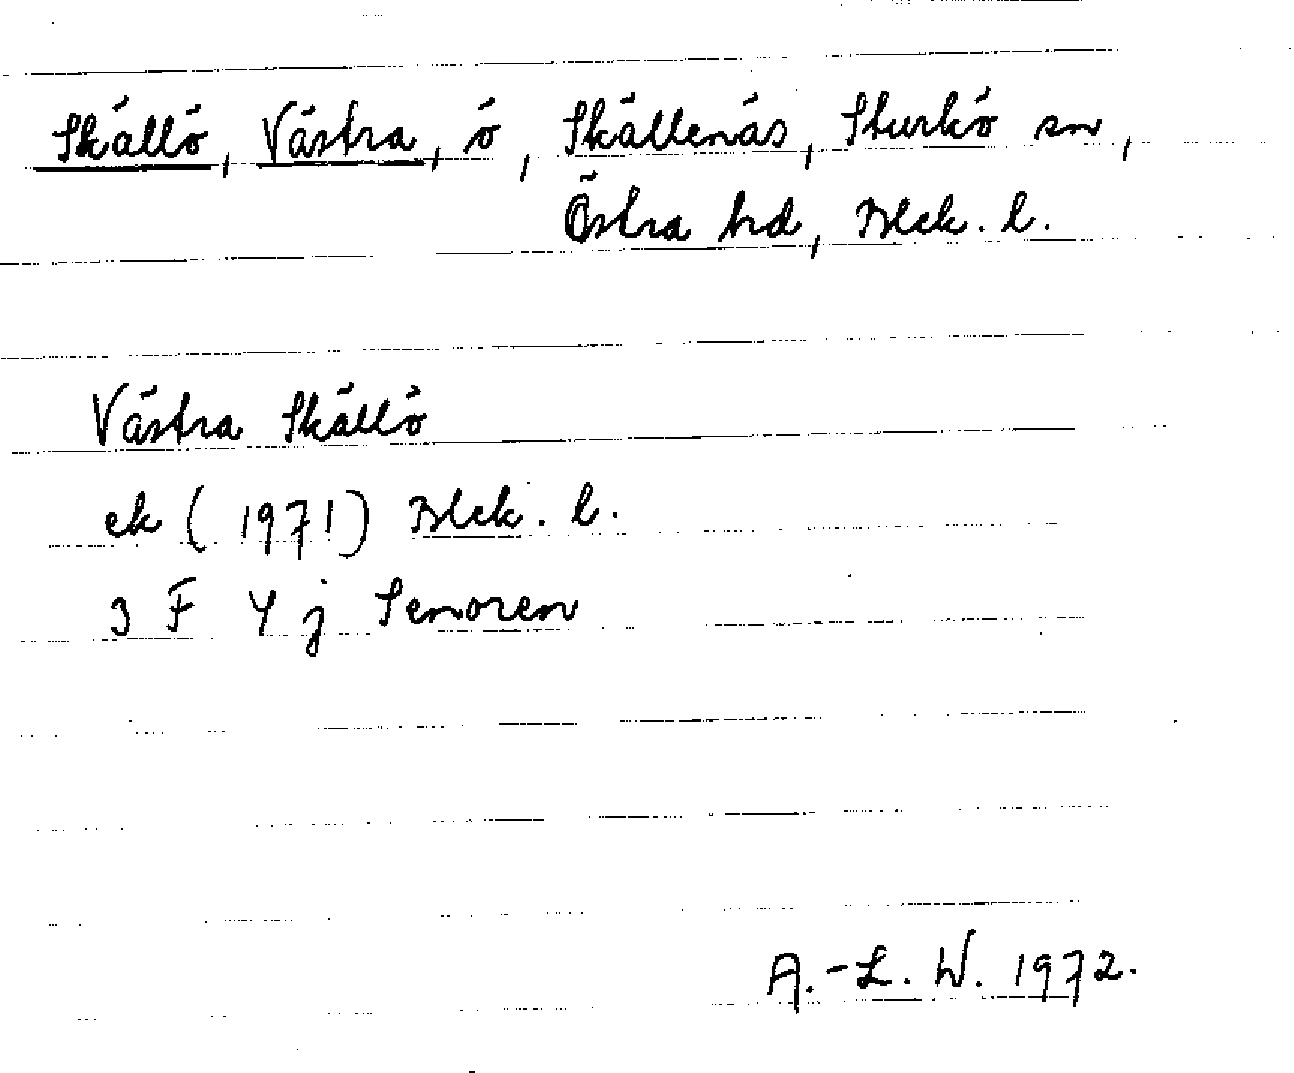 Skällö, Västra, ö, Skällenäs, Sturkö sn,
Östra hd, Blek. l.
Västra Skällö
ek (1971) Blek. l.
3 F Y j Senoren
A.-L. W. 1972.